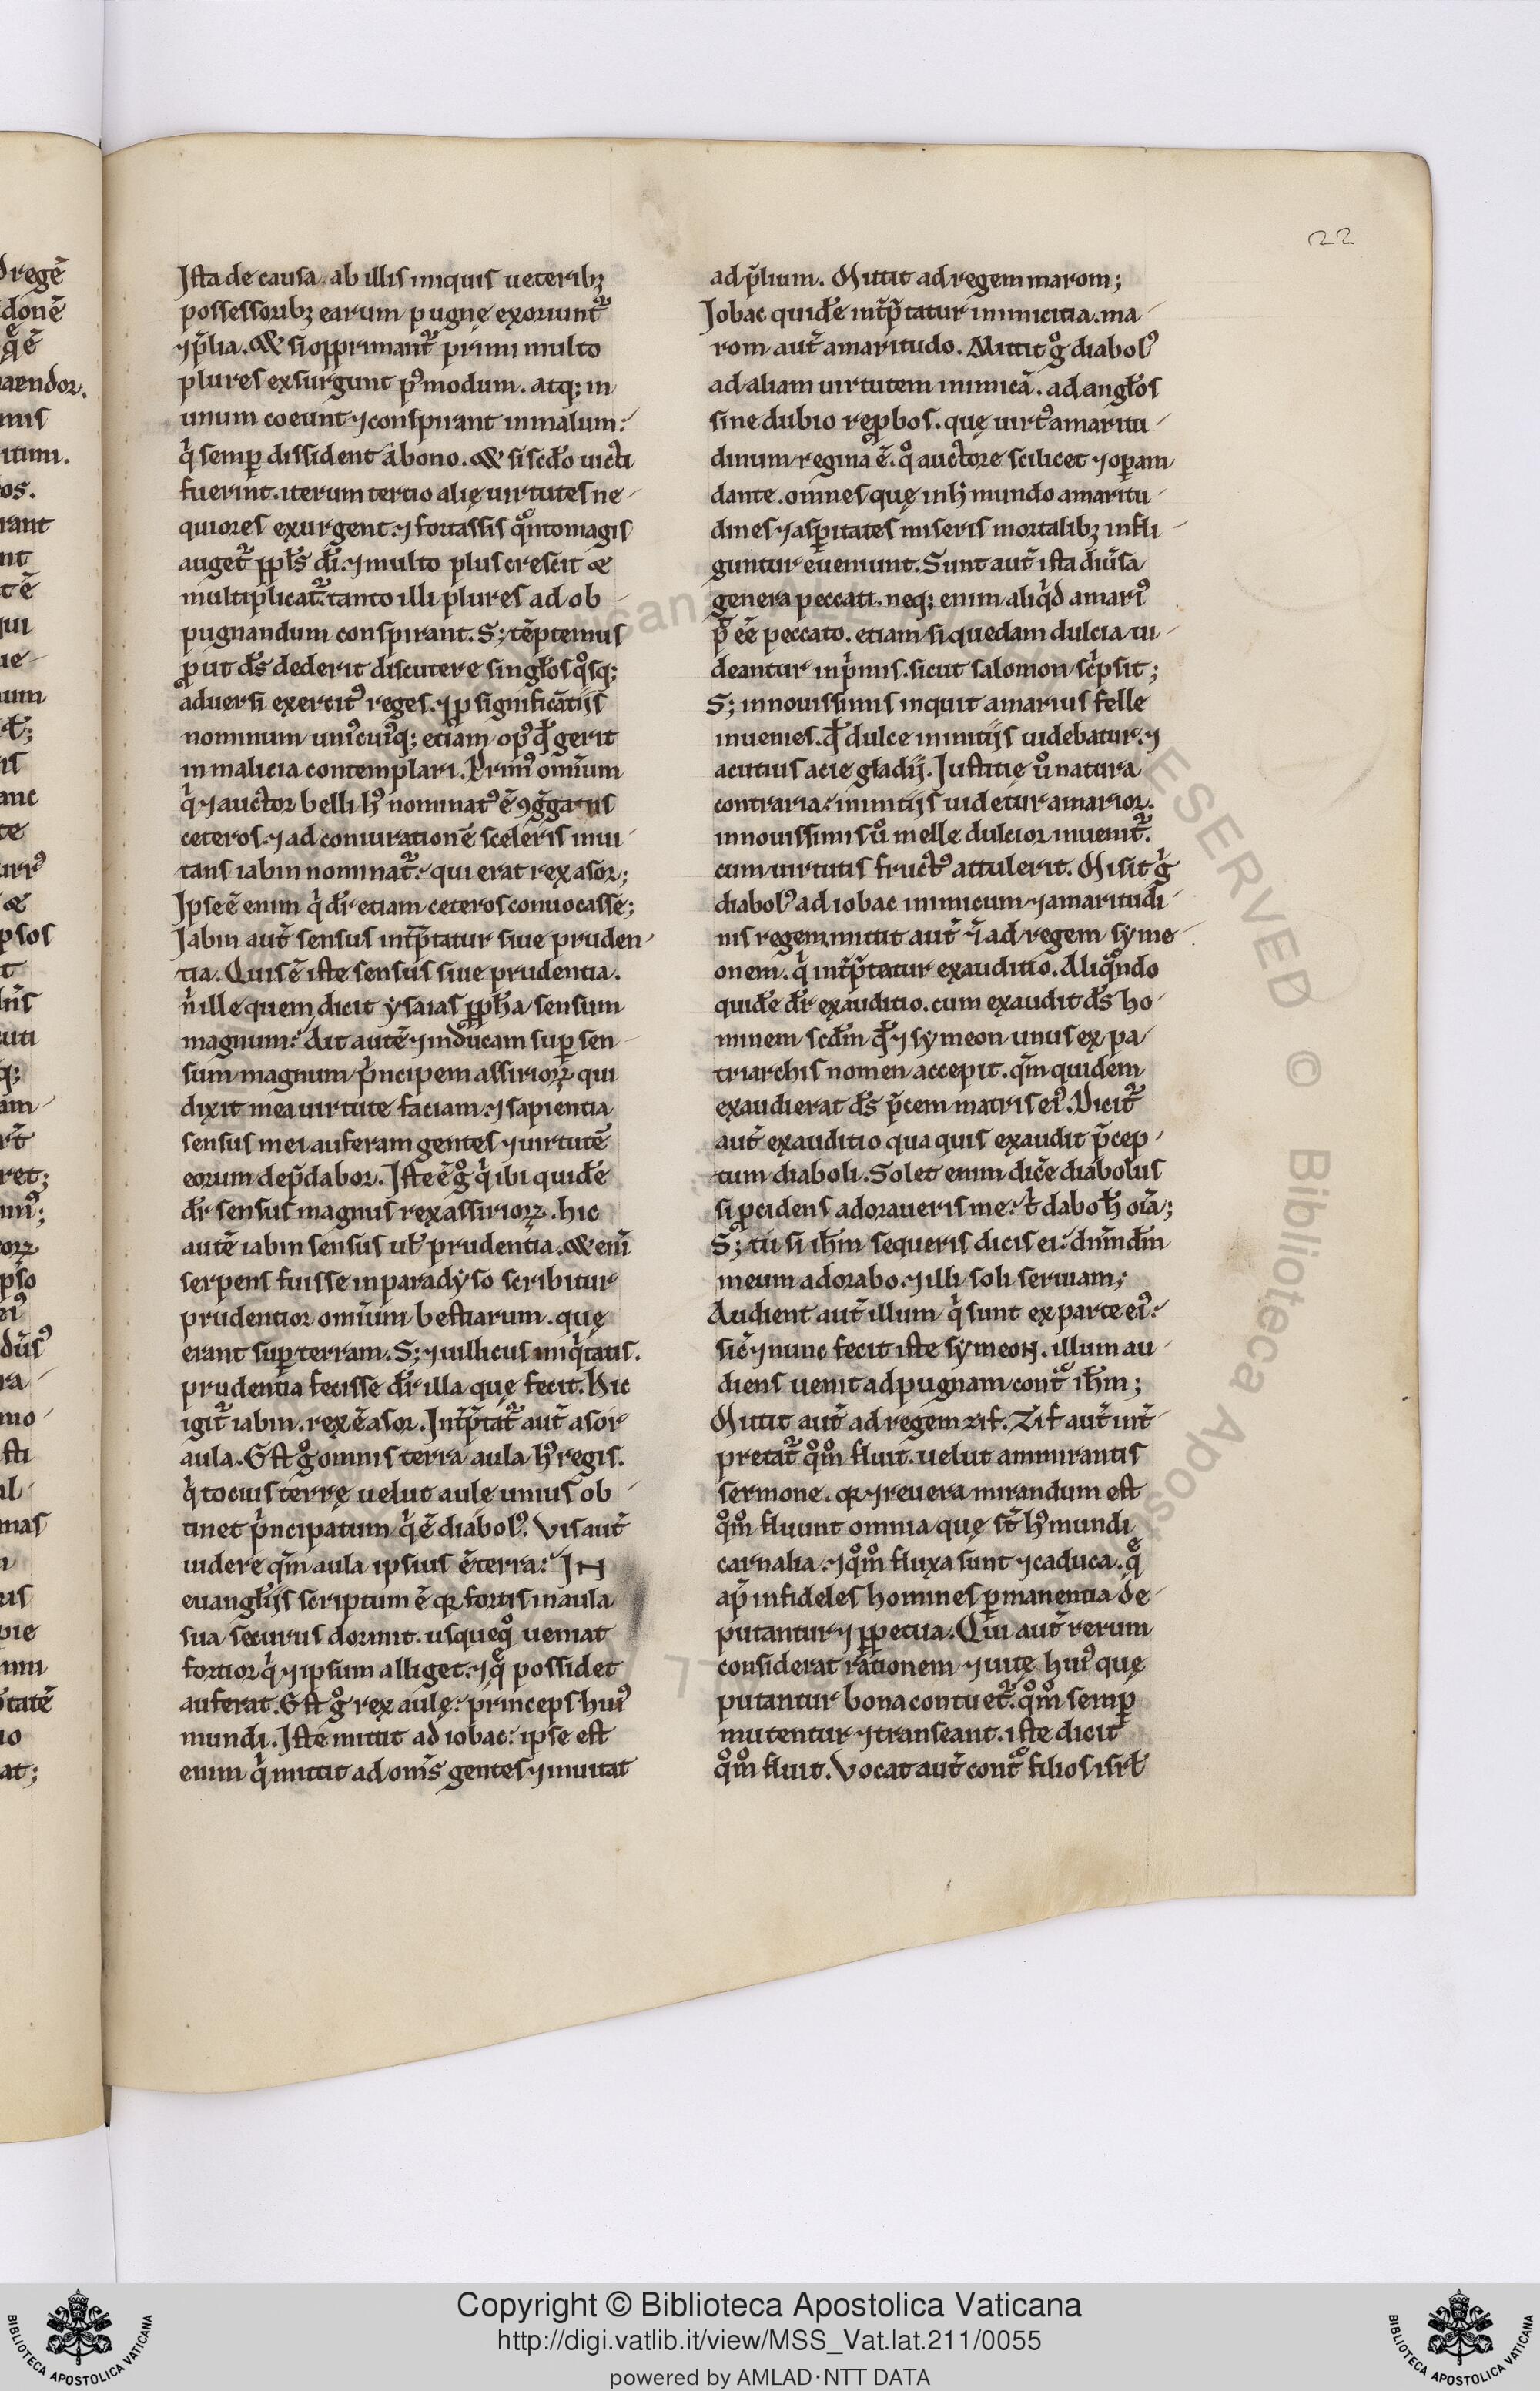 Ista de causa. ab illis iniquis ueteribꝫ
possessoribꝫ earum pugnę exoriunt᷑
⁊p̄lia. & si opprimant᷑ primi multo
plures exsurgunt p᷒modum. atq; in
unum coeunt ⁊conspirant in malum:
q̇ semꝑ dissident a bono. & si scd̄o uicti
fuerint. iterum tertio alię uirtutes ne-
quiores exurgent. ⁊ fortassis qͦntomagis
auget᷑ ppl̄s dī. ⁊ multo plus crescit &
multiplicat᷑. tanto illi plures ad ob-
pugnandum conspirant. S; tēptemus
ꝓut d̄s dederit discutere singl̄os qͦsq;
aduersi exercit᷒ reges. ⁊ꝑ significāt̄ijs
nominum uni᷒cui᷒q; etiam op᷒ qd̄ gerit
in malicia contemplari. Prim᷒ omīum
q̇ ⁊ auctor belli h᷒ nominat᷒ ē ꝯg̃gans
ceteros. ⁊ ad coniurationē sceleris inui-
tans iabin nominat᷑. qui erat rex asor;
Ipse ē enim q̇ dr̄ etiam ceteros conuocasse;
Jabin aut̄ sensus int̄p̄tatur siue pruden-
tia. Quis ē iste sensus siue prudentia.
n̄ ille quem dicit ysaias ꝓph̄a sensum
magnum: Ait autē ⁊ inducam suꝑ sen-
sum magnum ṗncipem assirioꝝ qui
dixit mea uirtute faciam. ⁊ sapientia
sensus mei auferam gentes ⁊ uirtutē
eorum dep̄dabor. Iste ē gͦ q̇ ibi quidē
dr̄ sensus magnus rex assirioꝝ. hic
autē iabin sensus ul̄ prudentia. & enī
serpens fuisse in paradyso scribitur
prudentior omīum bestiarum. quę
erant suꝑ terram. S; ⁊ uillicus iniq̇tatis.
prudentia fecisse dr̄ illa quę fecit. Hic
igit᷑ iabin. rex ē asor. Int̄p̄tat᷑ aut̄ asor
aula. Est gͦ omnis terra aula h᷒ regis.
q̇ tocius terrę uelut aule unius ob-
tinet ṗncipatum q̇ ē diabol᷒. Vis aut̄
uidere qm̄ aula ipsius ē terra: IN
euangl̄ijs scriptum ē qꝛ fortis in aula
sua securus dormit. usqueqͦ ueniat
fortior q̇ ⁊ ipsum alliget. ⁊ qͤ possidet
auferat. Est gͦ rex aulę: princeps hui᷒
mundi. Iste mittit ad iobac: ipse est
enim q̇ mittit ad om̄s gentes ⁊ inuitat
ad p̄lium. Mittit ad regem marom;
Jobac quidē int̄p̄tatur inimicitia. ma-
rom aut̄ amaritudo. Mittit gͦ diabol᷒
ad aliam uirtutem inimicā. ad angl̄os
sine dubio reꝓbos. quę uirt᷒ amaritu-
dinum regina ē. qͦ auctore scilicet ⁊ oꝑam
dante. omnes quę in h̄ mundo amaritu-
dines ⁊ asꝑitates miseris mortalibꝫ infli-
guntur eueniunt. Sunt aut̄ ista diūsa
genera peccati. neq; enim aliq̇d amari᷒
p̄ eē peccato. etiam si quedam dulcia ui-
deantur in ṗmis. sicut salomon sċpsit;
S; in nouissimis inquit amarius felle
inuenies. qd̄ dulce in initijs uidebatur. ⁊
acutius acie gladij. Iustitię uͦ natura
contraria: in initijs uidetur amarior.
in nouissimis uͦ melle dulcior inuenit᷑.
cum uirtutis fruct᷒ attulerit. Misit ġ
diabol᷒ ad iobac inimicum ⁊ amaritudi-
nis regem. mittit aut̄ ⁊ ad regem syme-
onem. q̇ int̄p̄tatur exauditio. Aliqͦndo
quidē dr̄ exauditio. cum exaudit d̄s ho-
minem scd̄m qd̄ ⁊ symeon unus ex pa-
triarchis nomen accepit. qm̄ quidem
exaudierat d̄s p̄cem matris ei᷒. Dicit᷑
aut̄ exauditio qua quis exaudit p̄cep-
tum diaboli. Solet enim dic̄e diabolus
si ꝓcidens adoraueris me: ṫ dabo h̄ oīa;
S; tu si ih̄m sequeris dicis ei: dn̄m dm̄
meum adorabo. ⁊ illi soli seruiam;
Audient aut̄ illum q̇ sunt ex parte ei᷒:
sic̄ ⁊ nunc fecit iste symeon. illum au-
diens uenit ad pugnam contͣ ih̄m;
Mittit aut̄ ad regem zif. Zif aut̄ int̄-
pretat᷑ qͦmͦ fluit. uelut ammirantis
sermone. qꝛ ⁊ reuera mirandum est
qͦmͦ fluunt omnia quę st̄ h᷒ mundi
carnalia. ⁊ qͦmͦ fluxa sunt ⁊ caduca. qͤ
ap̄ infideles homines ꝑmanentia de-
putantur ⁊ ꝑpetua. Qui aut̄ rerum
considerat rationem ⁊ uitę hui᷒ quę
putantur bona contuet᷑. qͦmͦ semꝑ
mutentur ⁊ transeant. iste dicit
qͦmͦ fluit. Vocat aut̄ contͣ filios isrl̄
22
Copyright © Biblioteca Apostolica Vaticana
http://digi.vatlib.it/view/MSS_Vat.lat.211/0055
powered by AMLAD·NTT DATA
BIBLIOTECA APOSTOLICA VATICANA
BIBLIOTECA APOSTOLICA VATICANA